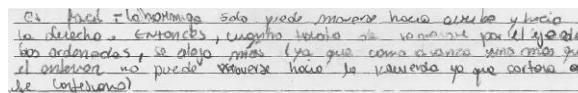 Es facil = la hormiga solo puede moverse hacia arriba y hacia
la derecha. Entonces, cuanto trata de moverse por el eje de
las ordenadas, se aleja más (ya que como avanza uno más que
el anterior no puede moverse hacia la izquierda ya que cortaria
se confesiono)